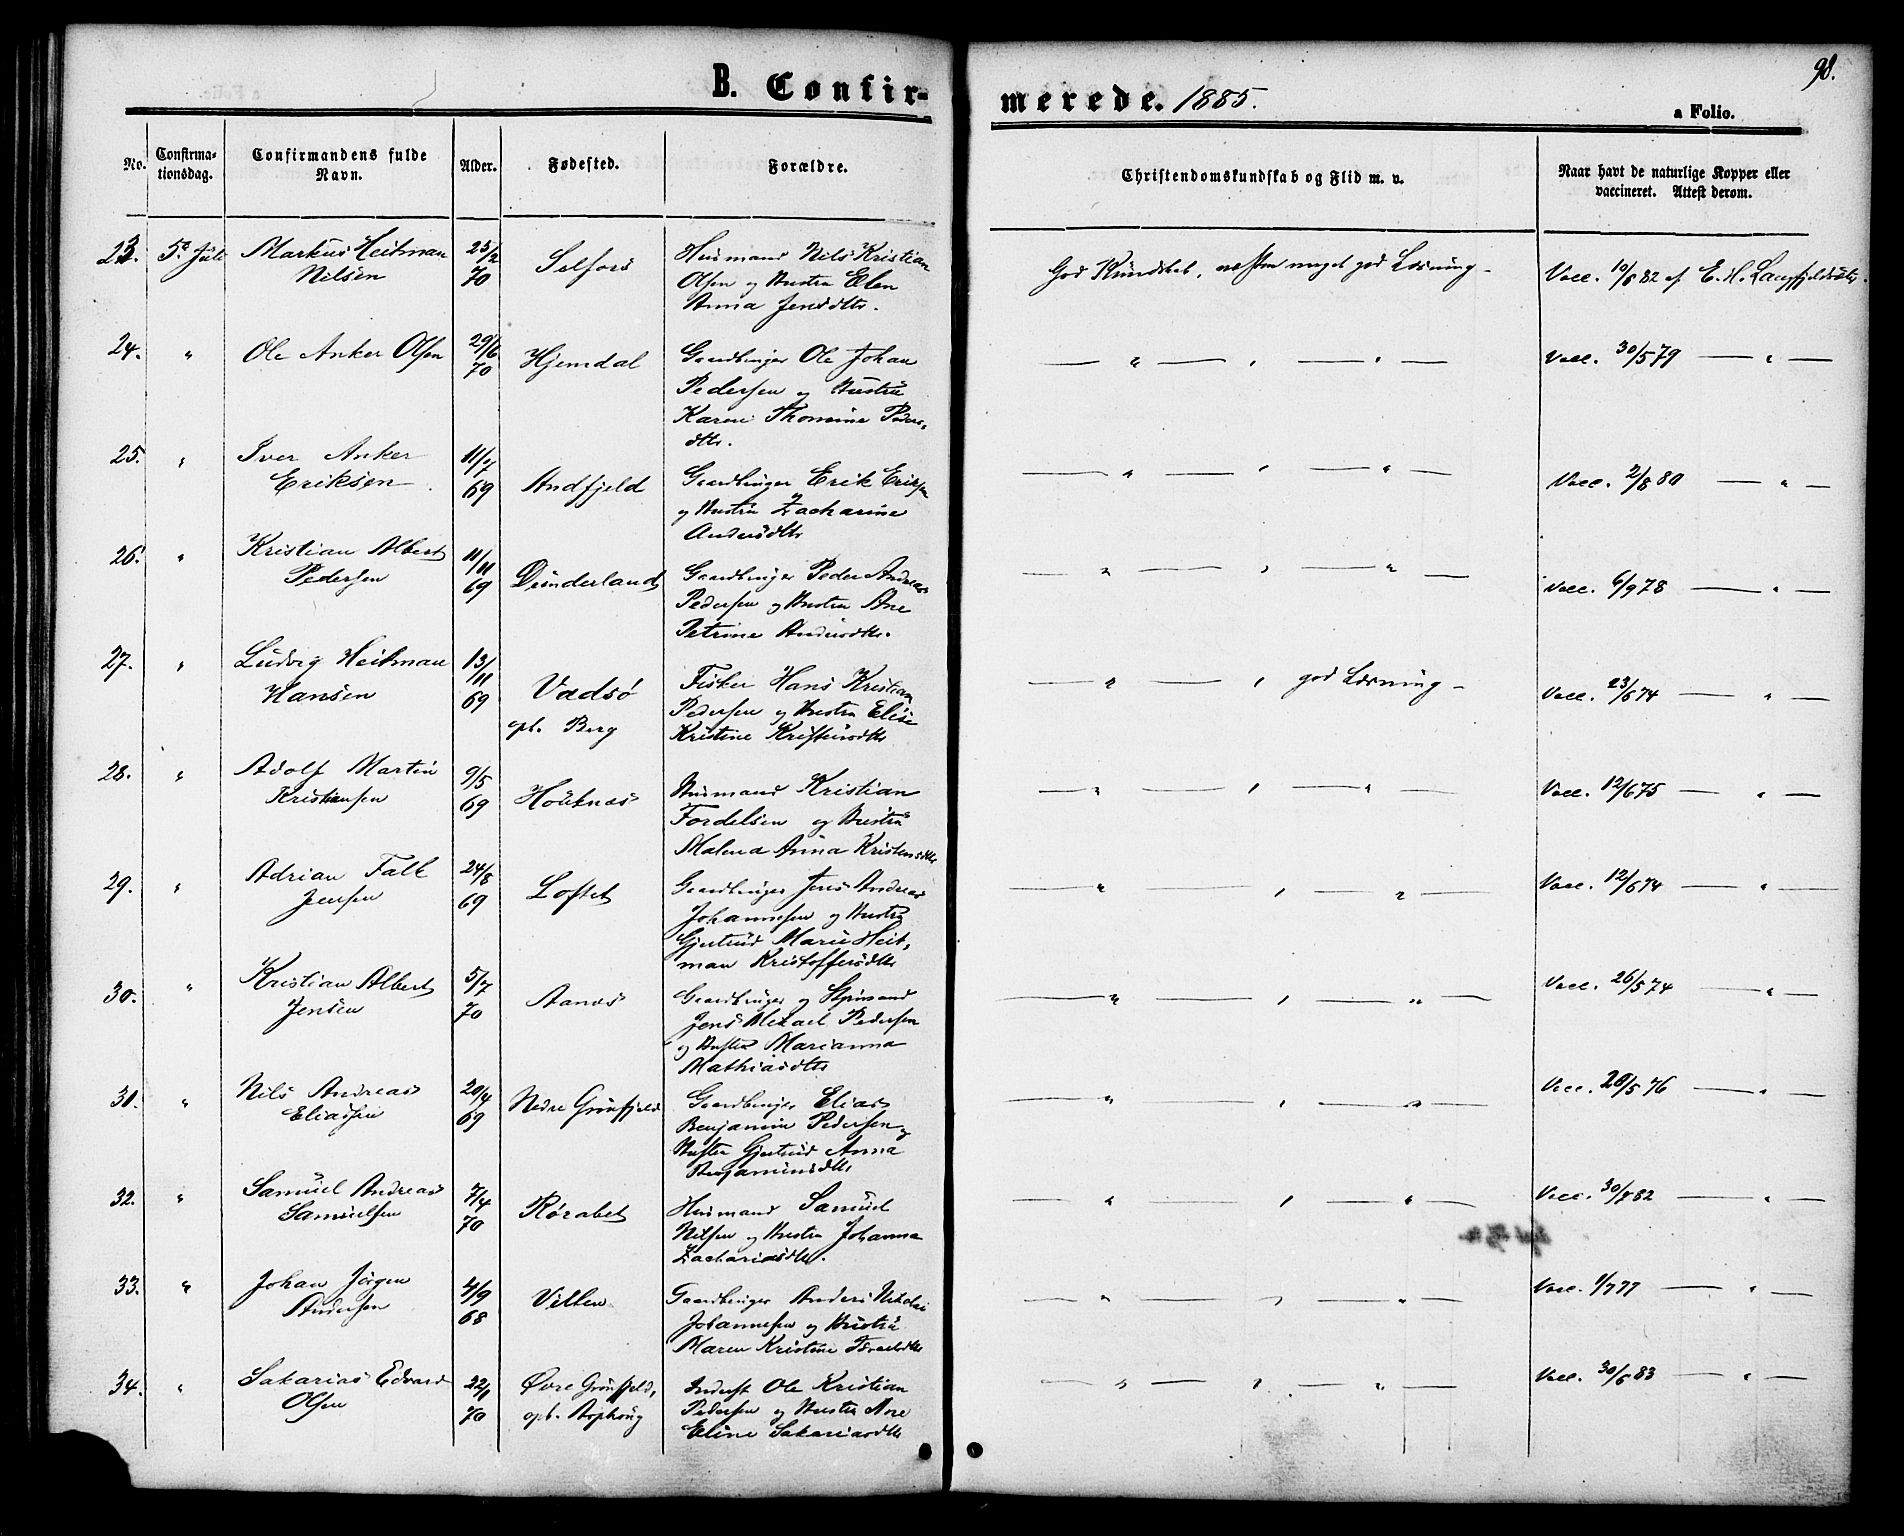 B. Confir-
merede. 1885.
98.
a Folio.
No.
Confirma-
tionsdag.
Confirmandens fulde
Navn.
Alder.
Fødested.
Forældre.
Christendomskundskab og Flid m. v.
Naar havt de naturlige Kopper eller
vaccineret. Attest derom.
23. 5te Juli Markus Heitman 25/2 Selfors Husmand Nils Kristian God Kundskab, næsten meget god Læsning - Vacc. 10/6 82 af E. H. Langfjeldester.
Nilsen 70 Olsen og Hustru Elen
Anna Jensdtr.
24. " Ole Anker Olsen 29/6 Hjemdal Gaardbruger Ole Johan — " — , — " — Vacc. 30/5 79 — " —
70 Pedersen og Hustru
Karen Thomine Peders-
dtr.
25. " Iver Anker 11/7 Andfjeld Gaardbruger Erik Eriksen — " — , — " — Vacc. 2/8 80 — " —
Eriksen 69 og Hustru Zacharine
Andersdtr
26. " Kristian Albert 11/11 Dunderland Gaardbruger Peder Andreas — " — , — " — Vacc. 6/9 78 — " —
Pedersen 69 Pedersen og Hustru Ane
Petrine Andersdtr.
27. " Ludvig Heitman 13/11 Vadsø Fisker Hans Kristian — " — , god Læsning - Vacc. 23/6 74 — " —
Hansen 69 opt. Berg Pedersen og Hustru Elise
Kristine Kristensdtr
28. " Adolf Martin 9/5 Houknes Husmand Kristian — " — , — " — Vacc. 12/6 75 — " —
Kristiansen 69 Fordelsen og Hustru
Malena Anna Kristensdtr
29. " Adrian Falk 24/8 Loftet Gaardbruger Jens Andreas — " — , — " — Vacc. 12/6 74 — " —
Jensen 69 Johannesen og Hustru
Gjertrud Marie Heit-
man Kristoffersdtr
30. " Kristian Albert 5/7 Aanes Gaardbruger og — " — , — " — Vacc. 26/5 74 — " —
Jensen 70 Jens Mikael Pedersen
og Hustru Marianna
Mathiasdtr
31. " Nils Andreas 20/4 Nedre Grønfjeld Gaardbruger Elias — " — , — " — Vacc. 28/5 76 — " —
Eliassen 69 Benjamin Pedersen og
Hustru Gjertrud Anna
Benjaminsdtr
32. " Samuel Andreas 7/4 Rørabet Husmand Samuel — " — , — " — Vacc. 30/8 82 — " —
Samuelsen 70 Nilsen og Hustru Johanna
Zachariasdtr.
33. " Johan Jörgen 4/9 Villen Gaardbruger Anders Nikolai — " — , — " — Vacc. 1/7 77 — " —
Andersen 68 Johannesen og Hustru
Maren Kristine Israelsdtr
34. " Sakarias Edvard 22/1 Øvre Grønfjeld, Inderst Ole Kristian — " — , — " — Vacc. 30/6 83 — " —
Olsen 70 opt. Asphoug Pedersen og Hustru Ane
Eline Sakariasdtr